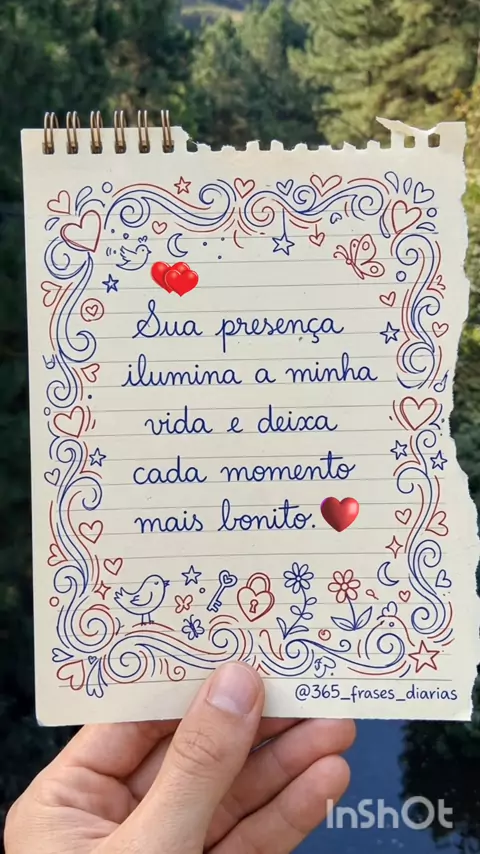 Sua presença
ilumina a minha
vida e deixa
cada momento
mais bonito.
@365_frases_diarias
InShOt